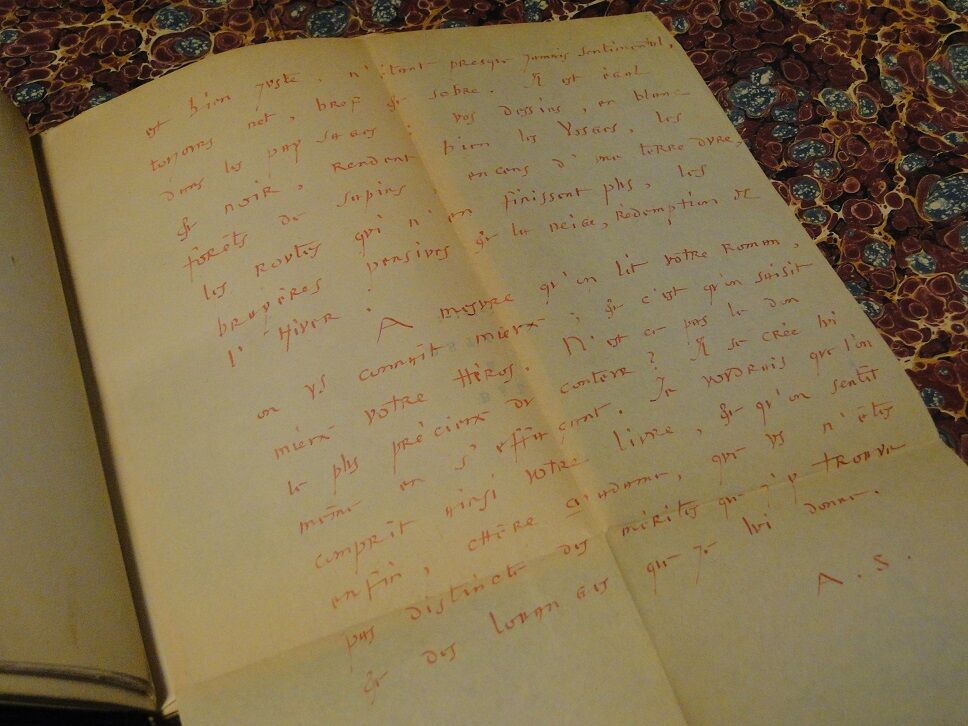 est bien juste, n'étant presque jamais sentimental,
toujours net, bref & sobre. Il est égal
dans les paysages : vos dessins, en blanc
& noir, rendent bien les Vosges, les
forêts de sapins, encens d'une terre dure,
les routes qui n'en finissent plus, les
bruyères pensives & la neige, rédemption de
l'Hiver. A mesure qu'on lit votre Roman,
on vs connaît mieux, & c'est qu'on saisit
mieux votre Héros. N'est ce pas le don
le plus précieux du conteur ? Il se crée lui
même en s'effaçant. Je voudrais que l'on
comprit ainsi votre livre, & qu'on sentît
enfin, chère Madame, que vs n'êtes
pas distincte des mérites que j'y trouve
& des louanges que je lui donne.
A. S.